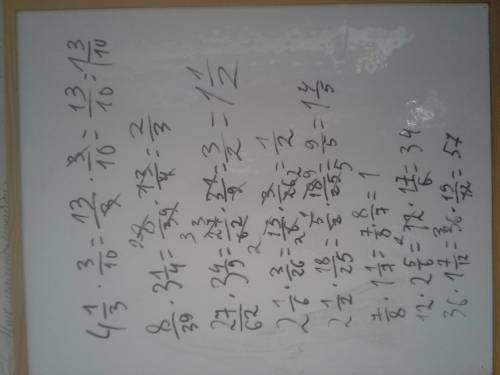 4 1/3 · 3/10 = 13/3 · 3/10 = 13/10 = 1 3/10
8/39 · 3 1/4 = 8/39 · 13/4 = 2/3
27/62 · 3 4/9 = 27/62 · 31/9 = 3/2 = 1 1/2
2 1/6 · 3/26 = 13/6 · 3/26 = 1/2
2 1/2 · 18/25 = 5/2 · 18/25 = 9/5 = 1 4/5
7/8 · 1 1/7 = 7/8 · 8/7 = 1
12 · 2 5/6 = 12 · 17/6 = 34
36 · 1 7/12 = 36 · 19/12 = 57